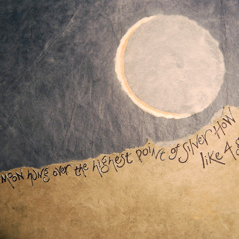 MOON HUNG OVER the highest point of SILVER HOW
like a